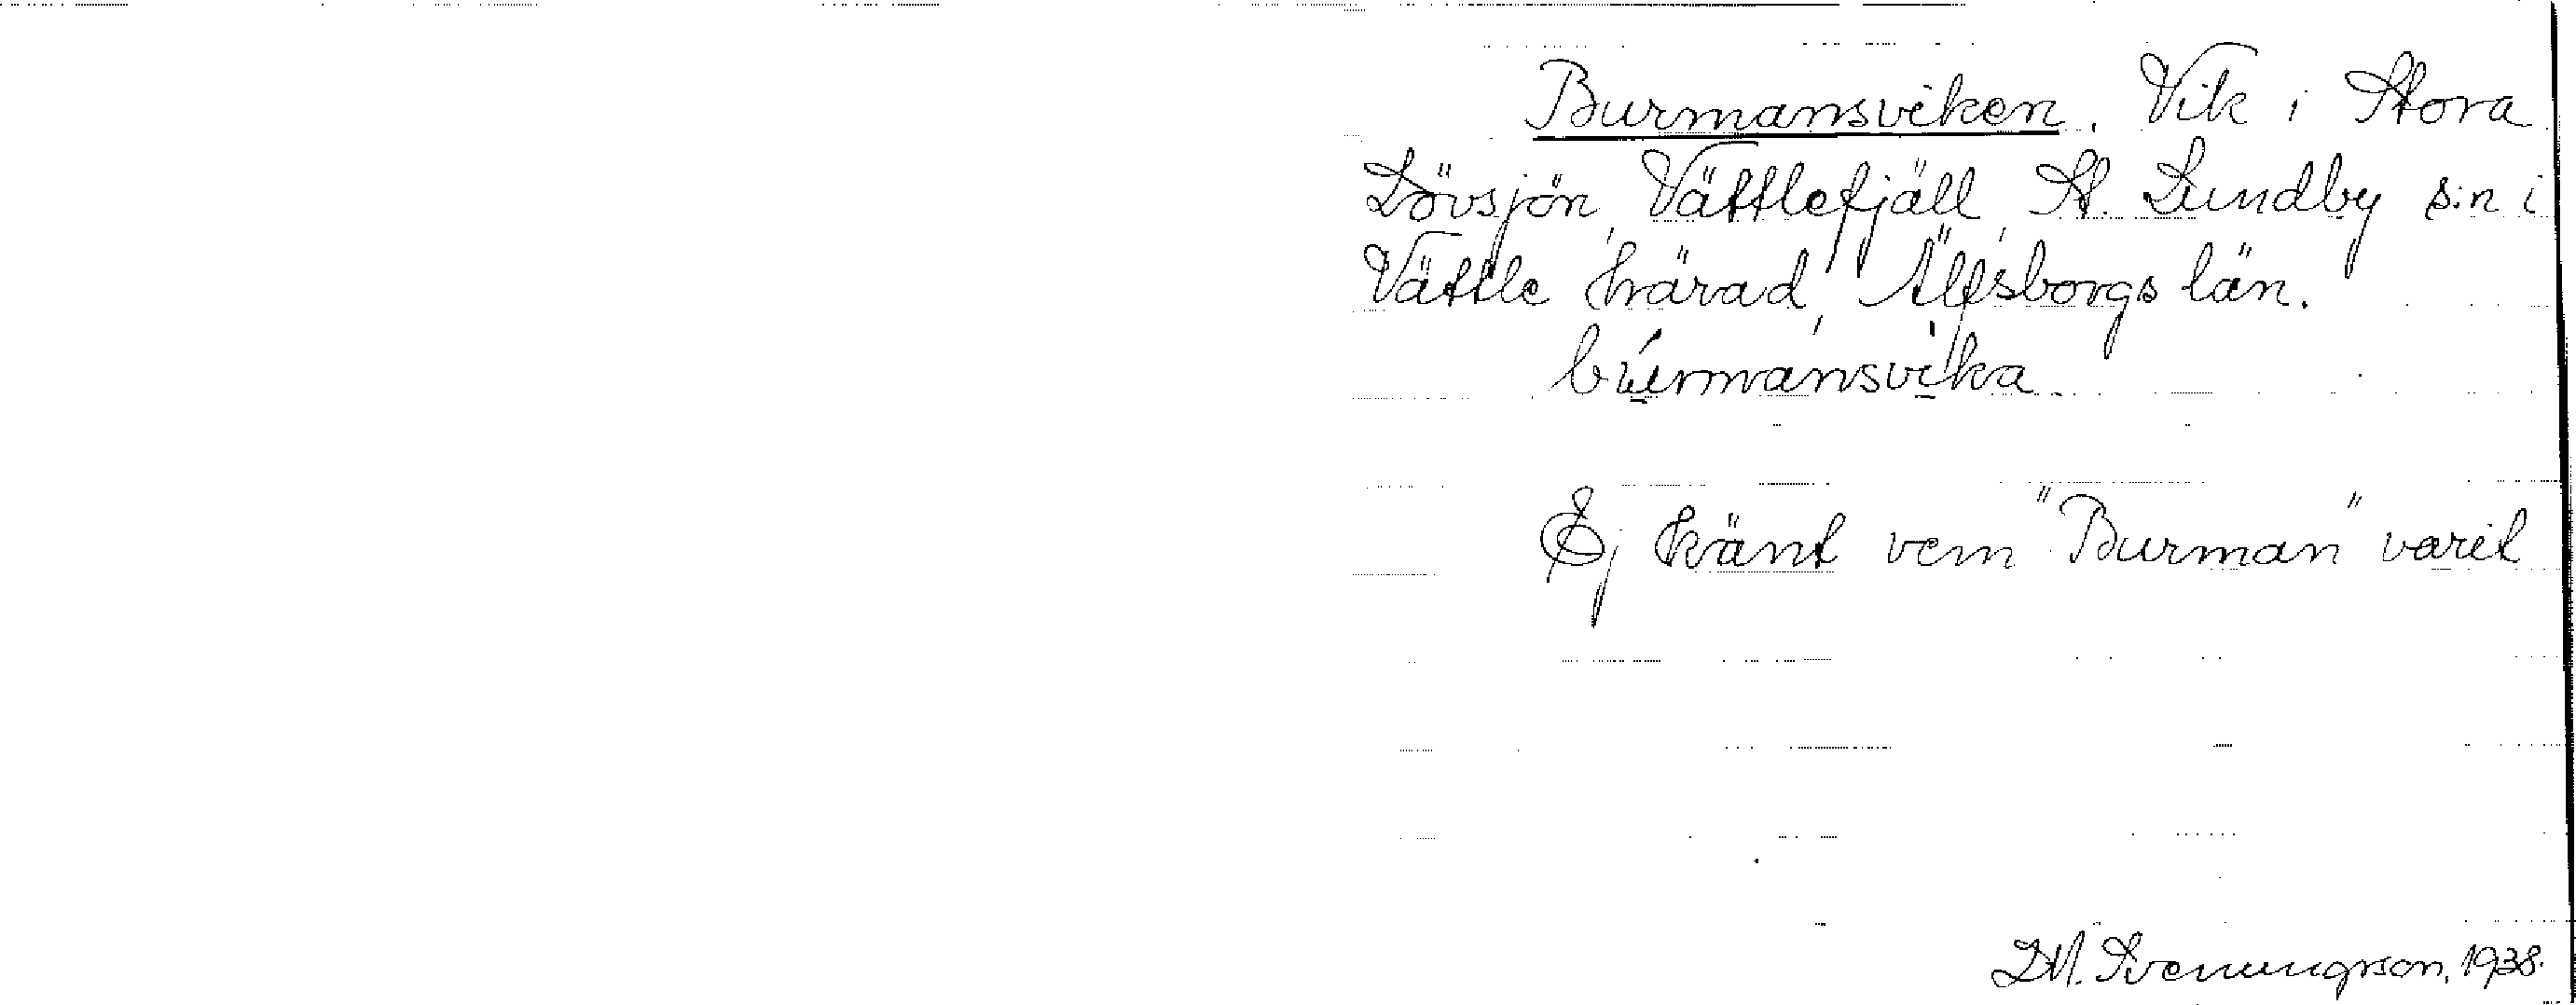 Burmansviken. Vik i Stora
Lövsjön, Vättlefjäll, St. Lundby s:n i
Vättle härad, Älfsborgs län.
búrmansvìka
Ej känt vem "Burman" varit
D.M. Svenungsson, 1938.